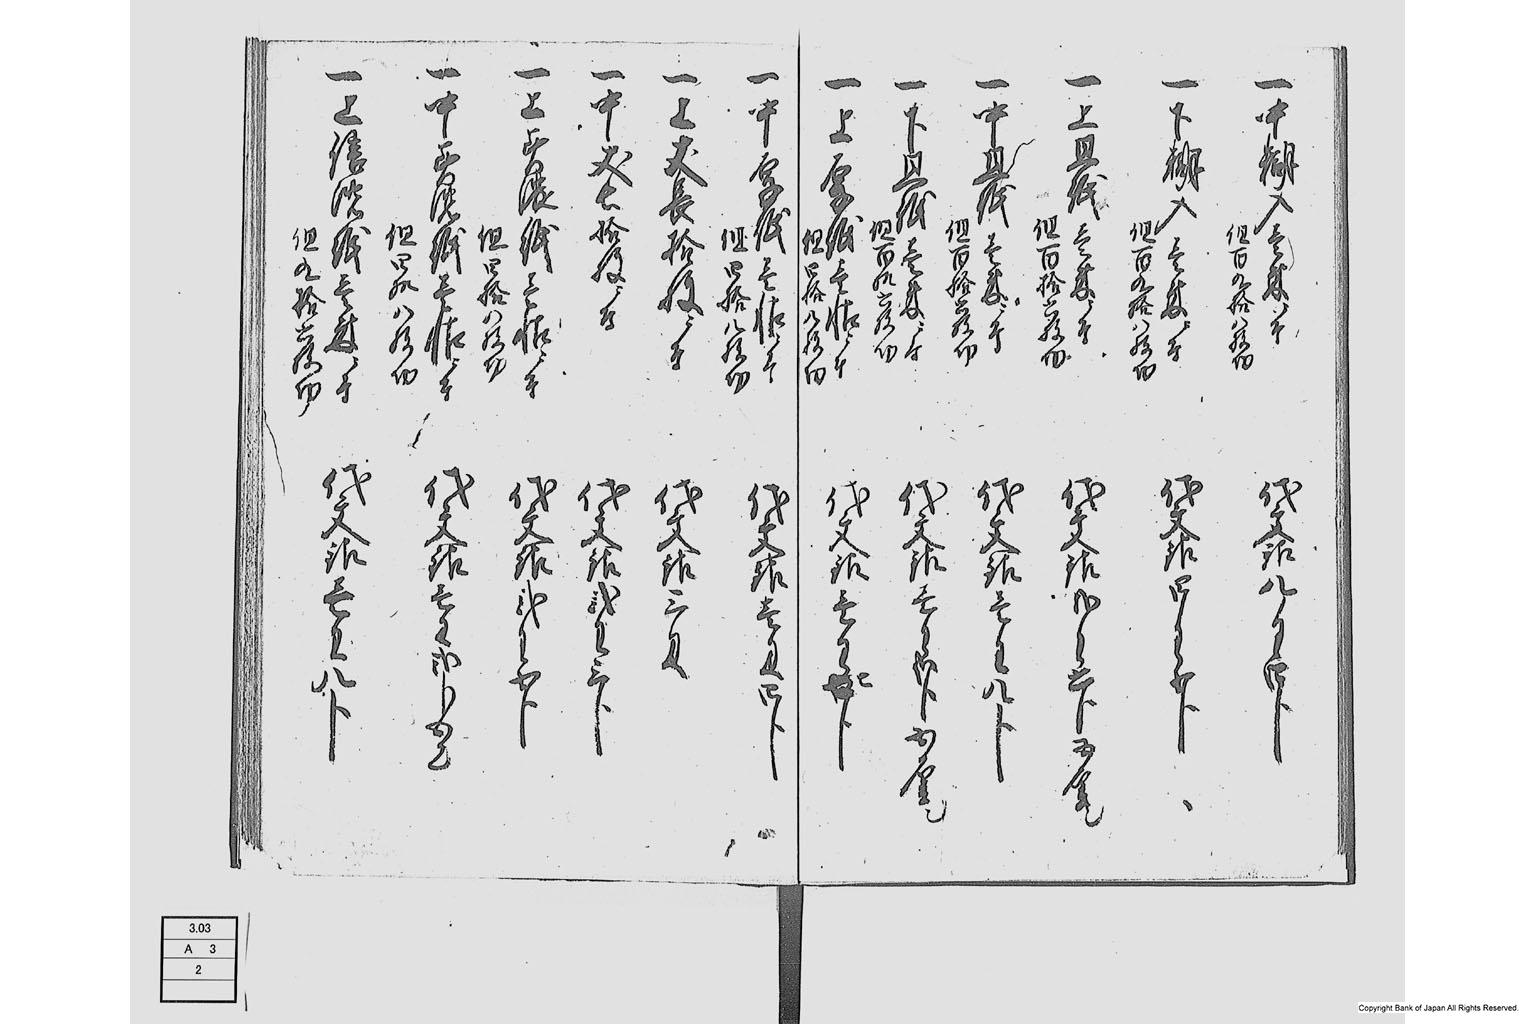 一中糊入壱束ニ付
但百九拾八枚仍
代文銀八匁四分
一下糊入壱束ニ付
但百九拾八枚仍
代文銀四匁五分
一上皿紙壱束ニ付
但百拾六枚仍
代文銀
一中皿紙壱束ニ付
但百拾六枚仍
代文銀壱匁八分
一下皿紙壱束ニ付
代文銀壱匁
一上厚紙壱帖ニ付
但四拾八枚仍
代文銀壱匁
一中厚紙壱帖ニ付
但四拾八枚仍
代文銀壱匁四分
一上丈長拾枚ニ付
代文銀三匁
一中丈長拾枚ニ付
代文銀弐匁三分
一上美濃紙壱帖ニ付
但四拾八枚仍
代文銀弐匁五分
一中美濃紙壱帖ニ付
但四拾八枚仍
代文銀壱匁
一上清帳紙壱束ニ付
但九拾六枚仍
代文銀壱匁八分
3.03
A 3
2
Copyright Bank of Japan All Rights Reserved.